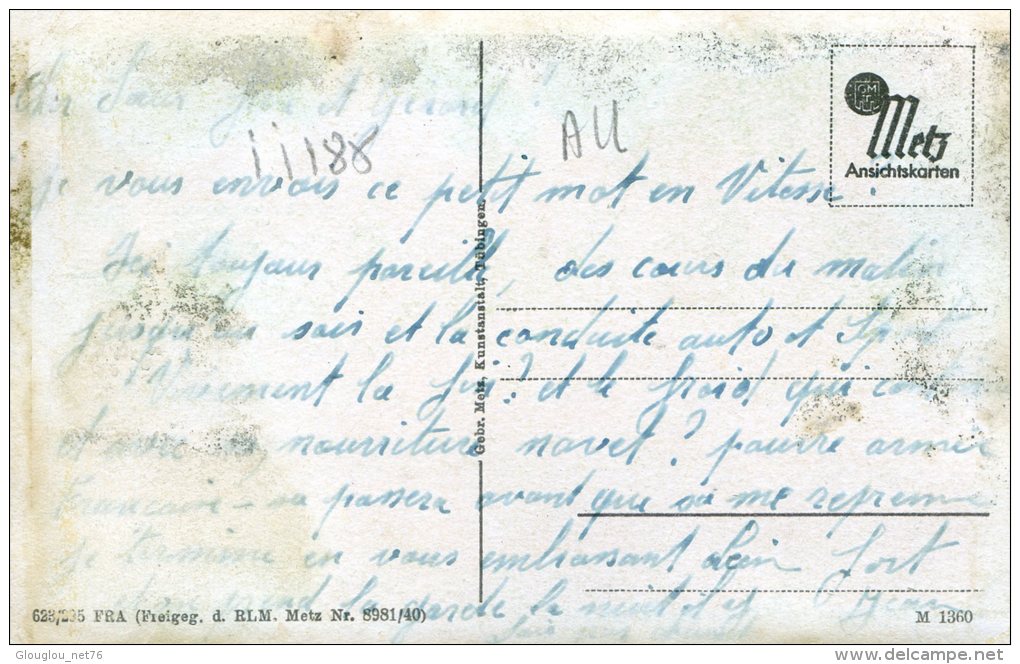 et Gérard !
11188
AU
Metz
Ansichtskarten
je vous envois ce petit mot en Vitesse.
toujour pareille, des cours du matin
jusqu'au soir et la conduite auto et Sport
Vivement la fin ? et le froid qui
et avec nourriture navet ? pauvre armée
Francaise - sa passera avant que sa me reprenne
je termine en vous embrassant bien fort
la garde la nuit
Gebr. Metz, Kunstanstalt, Tübingen.
623/295 FRA (Freigeg. d. RLM. Metz Nr. 8981/40)
M 1360
Glouglou_net76
www.delcampe.net